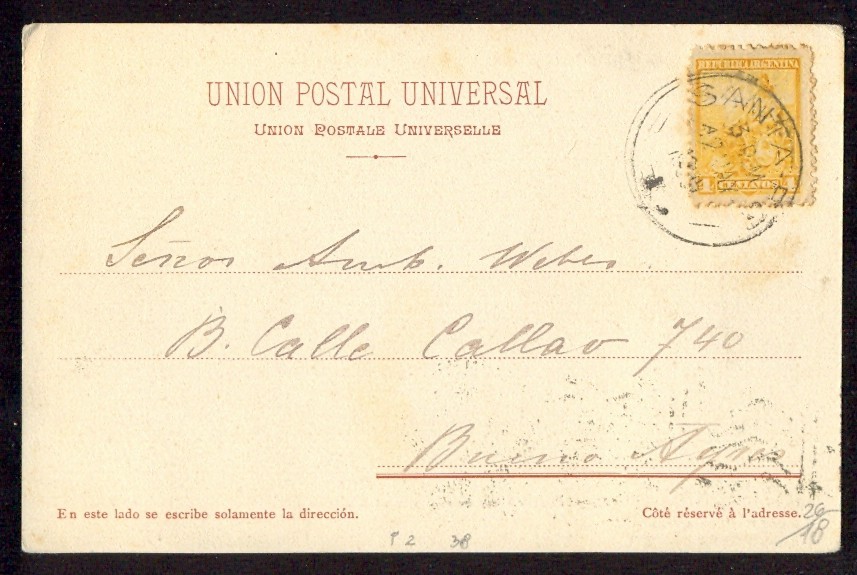 UNION POSTAL UNIVERSAL
UNION POSTALE UNIVERSELLE
SANTA
3 P.M
Señor Amb. Weber.
B. Calle Callao 740
Buenos Ayres
En este lado se escribe solamente la dirección.
Côté réservé à l'adresse.
26
18
P 2 38